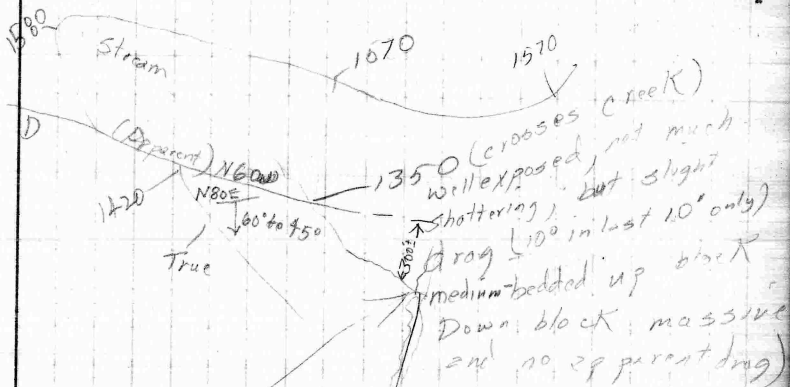 1500
Stream
1570
1570
D
(Apparent) N60W
1420
N80E
60° to 45°
True
1350 (crosses creek)
well exposed, not much
shattering, but slight
drag (10° in last 10° only)
300±
medium-bedded up block
Down block massive
and no apparent drag)